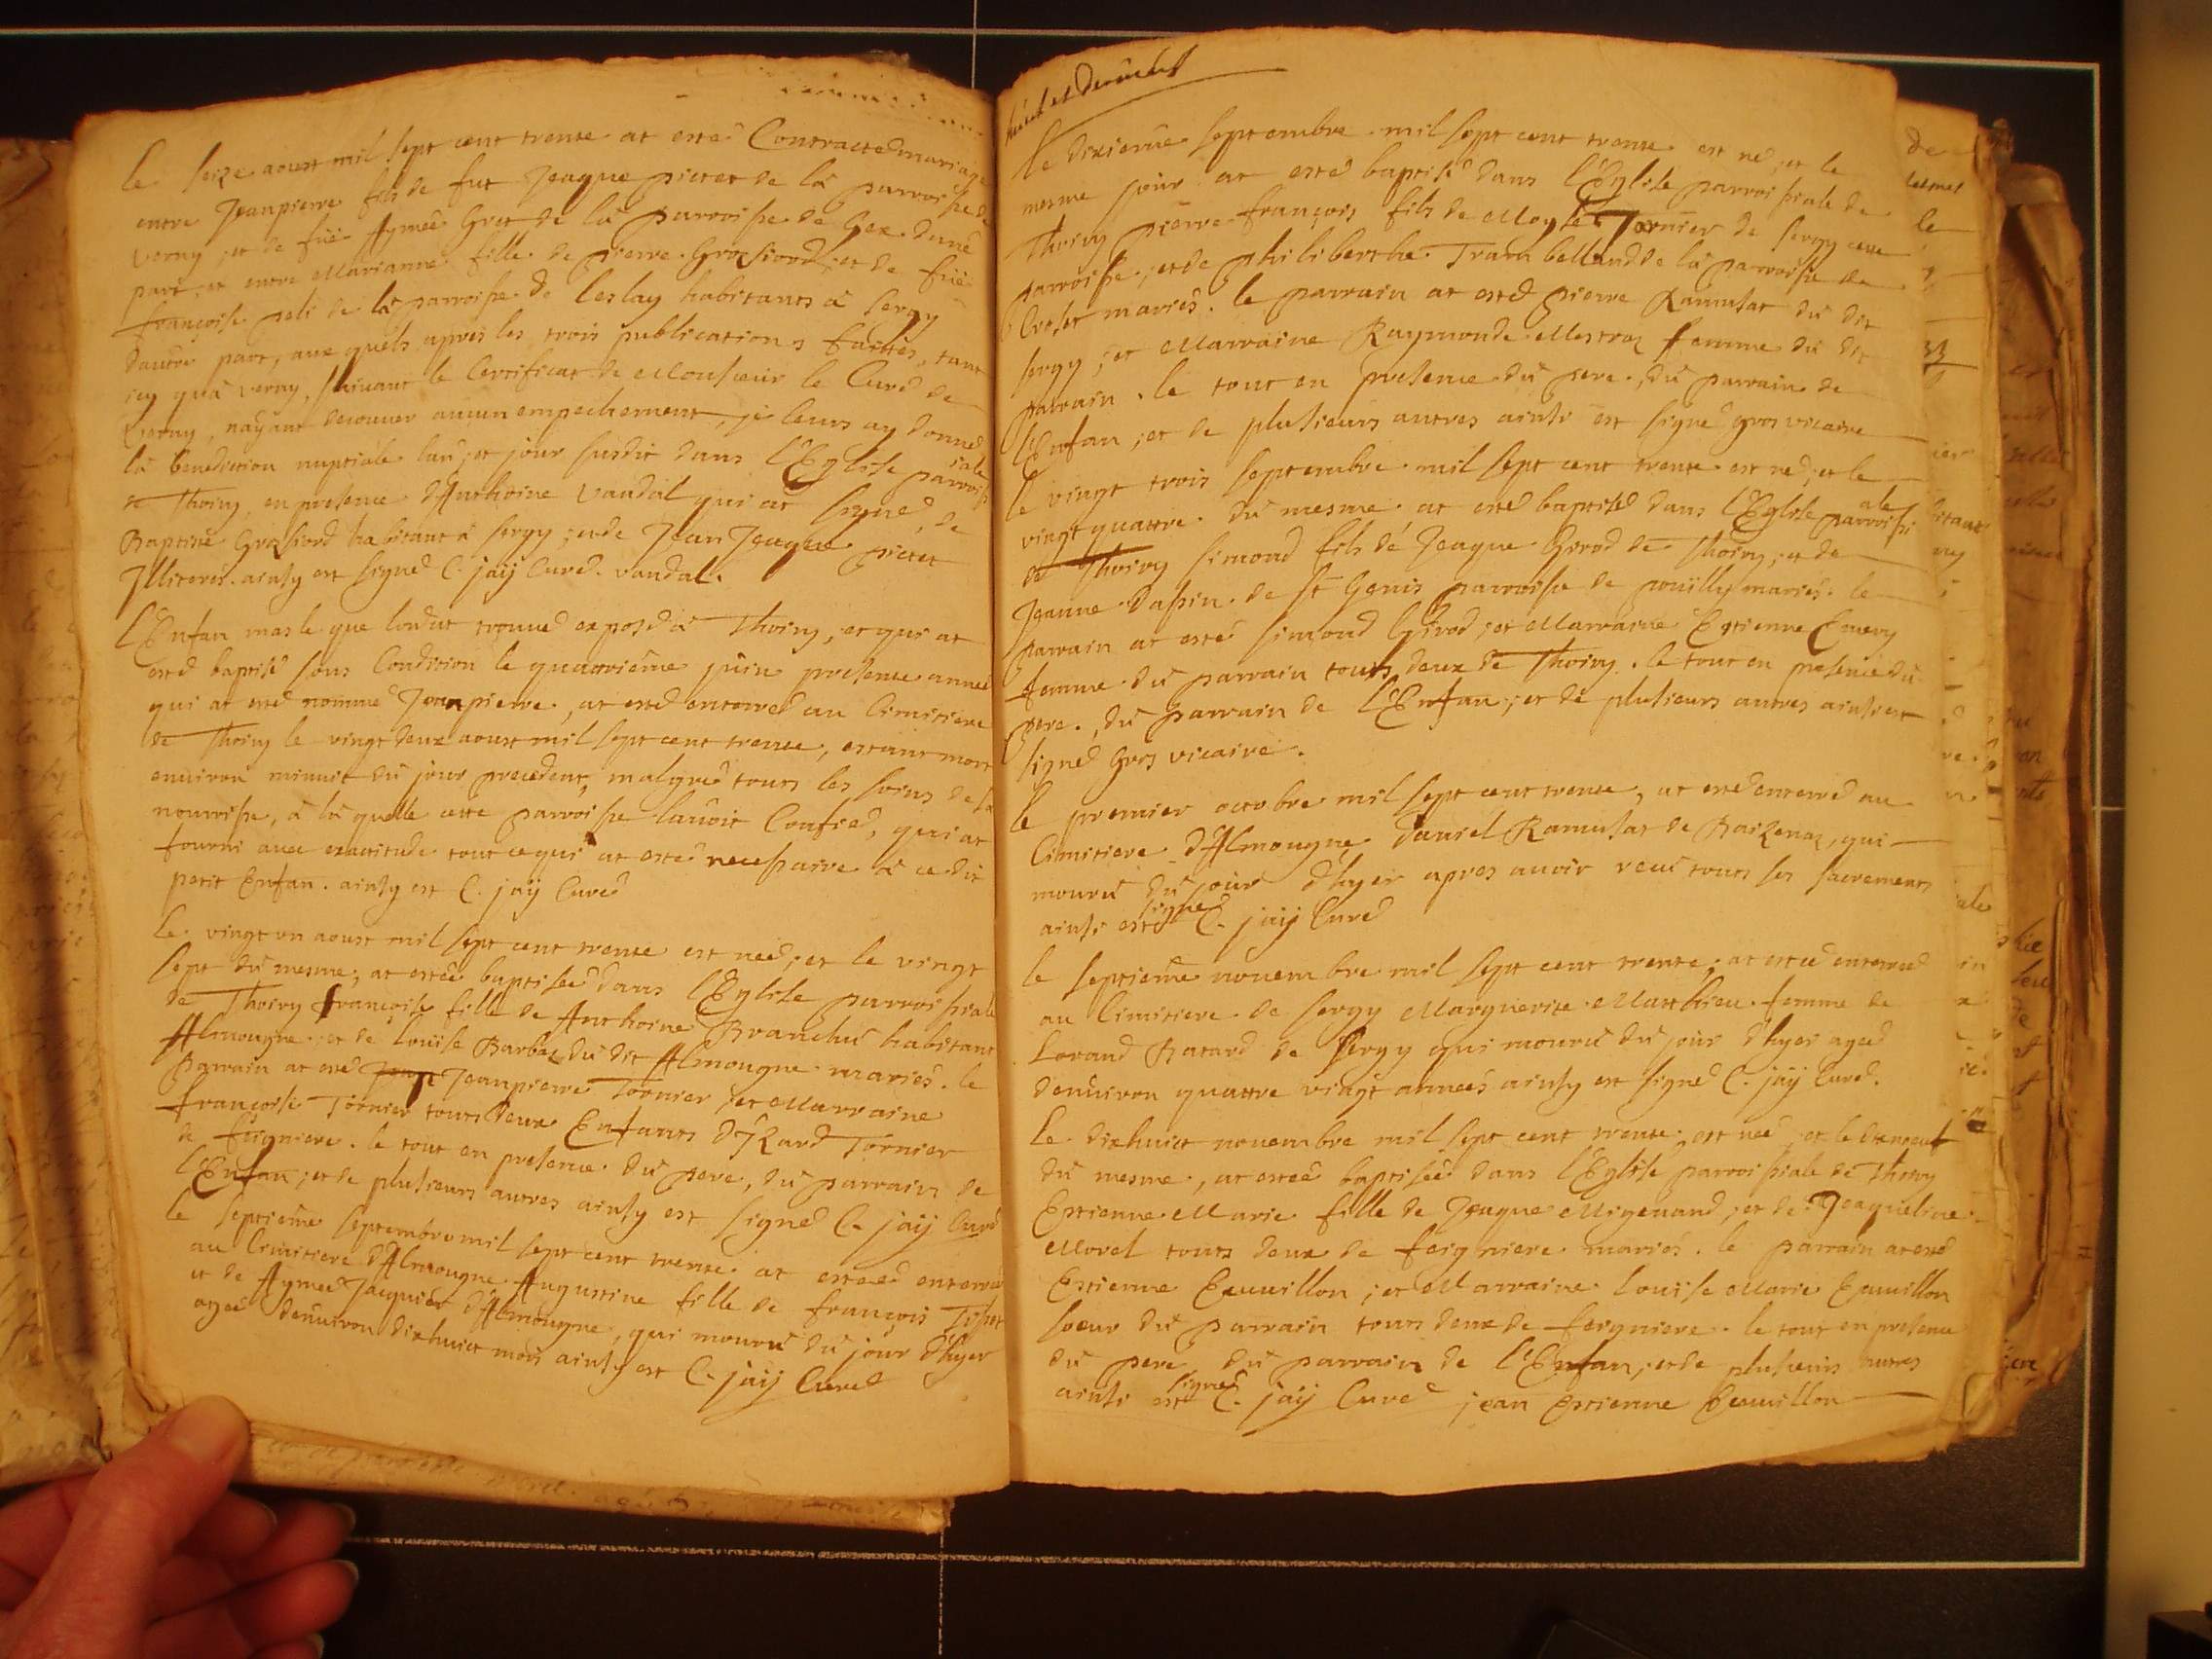 le seize aoust mil sept cent trente at esté Contracté mariage
entre Jeanpierre fils de fut Jeaque pictet de là parroisse de
verny ; et de füe Aymeé Gret de là parroisse de Gex. dune
part ; et entre Marianne fille de pierre Grosfiord ; et de füe
françoise peli de là parroisse de leslay habitants à sergy
dautre part, aux quels apres les trois publications faittes, tant
icy quà verny, suivant le Certificat de Monsieur le Curé de
verny, nayant decouver aucun empechement, je leurs ay donné
là benediction nuptiale lan ; et jour susdit dans l'Eglise parroissiale
de Thoiry, en presence d'Anthoine vandal qui at signé, de
Baptiste Grosfiord habitant à sergy ; et de Jean Jeaque pictet
Illiterés. ainsy est signé C. jaÿ Curé. vandal.
l'Enfan masle que londut trouvé exposé à Thoiry, et qui at
esté baptisé sous Condition le quatrieme juin presente anneé
qui at esté nommé Jeanpierre, at esté enterré au Cimitiere
de Thoiry le vingt deux aoust mil sept cent trente, estant mort
environ minuit du jour precedent, malgré touts les soins de sa
nourrisse, à là quelle cette parroisse lavoit Confié, qui at
fourni avec exactitude tout ce qui at esté necessaire à ce dit
petit Enfan. ainsy est C. jaÿ Curé
le vingt un aoust mil sept cent trente est neé ; et le vingt
sept du mesme ; at esteé baptiseé dans l'Eglise parroissiale
de Thoiry françoise fille de Anthoine Branchu habitant
Almougne ; et de louise Barbaz du dit Almougne mariés. le
parrain at esté Jeanpierre Tornier ; et Marraine
françoise Tornier touts deux Enfants d'IZard Tornier
de feigniere. le tout en presence du pere, du parrain de
l'Enfan ; et de plusieurs autres ainsy est signé C. jaÿ Curé
le septieme septembre mil sept cent trente at esteé enterreé
au Cimitiere d'Almougne Augustine fille de françois Tisset
et de Aymeé Jacquier d'Almougne, qui mouru du jour d'hyer
ageé denuiron dixhuict mois ainsy est C. jaÿ Curé
le dixieme septembre mil sept cent trente est né ; et le
mesme jour at esté baptisé dans l'Eglise parroissiale de
Thoiry pierre françois fils de Moyse Tornier de sergy cette
parroisse ; et de philiberthe Trambelland de là parroisse de
Croset mariés. le parrain at esté pierre Ramusat du dit
sergy ; et Marraine Raymonde Mestraz femme du dit
parrain. le tout en presence du pere, du parrain de
l'Enfan ; et de plusieurs autres ainsi est signé gros vicaire
le vingt trois septembre mil sept cent trente est né ; et le
vingt quattre du mesme at esté baptisé dans l'Eglise parroissiale
de Thoiry simond fils dé Jeaque Girod de Thoiry ; et de
Jeanne dapin de st Genis parroisse de pouilly mariés. le
parrain at esté simond Girod ; et Marraine Estienne Emery
femme du parrain touts deux de Thoiry. le tout en presence du
pere, du parrain de l'Enfan ; et de plusieurs autres ainsi est
signé Gros vicaire.
le premier octobre mil sept cent trente, at esté enterré au
Cimitiere d'Almougne daniel Ramusat de Baizenaz, qui
mouru du jour d'hyer apres auoir reçu touts ses sacrements
ainsi est signé C. jaÿ Curé
le septieme nouembre mil sept cent trente ; at esteé enterreé
au Cimitiere de sergy Marguerite Matthieu femme de
Lorand Batard de sergy qui mouru du jour d'hyer ageé
denuiron quattre vingt anneés ainsy est signé C. jaÿ Curé.
le dixhuict nouembre mil sept cent trente ; est neé ; et le dixneuf
du mesme, at esteé baptiseé dans l'Eglise parroissiale de Thoiry
Estienne Marie fille de Jeaque Migenand ; et de Jeaqueline
Morel touts deux de feigniere mariés. le parrain at esté
Estienne Ecuvillon ; et Marraine louise Marie Ecuvillon
soeur du parrain touts deux de feigniere. le tout en presence
du pere, du parrain de l'Enfan ; et de plusieurs autres
ainsi est signé C. jaÿ Curé jean Estienne Ecuvillon